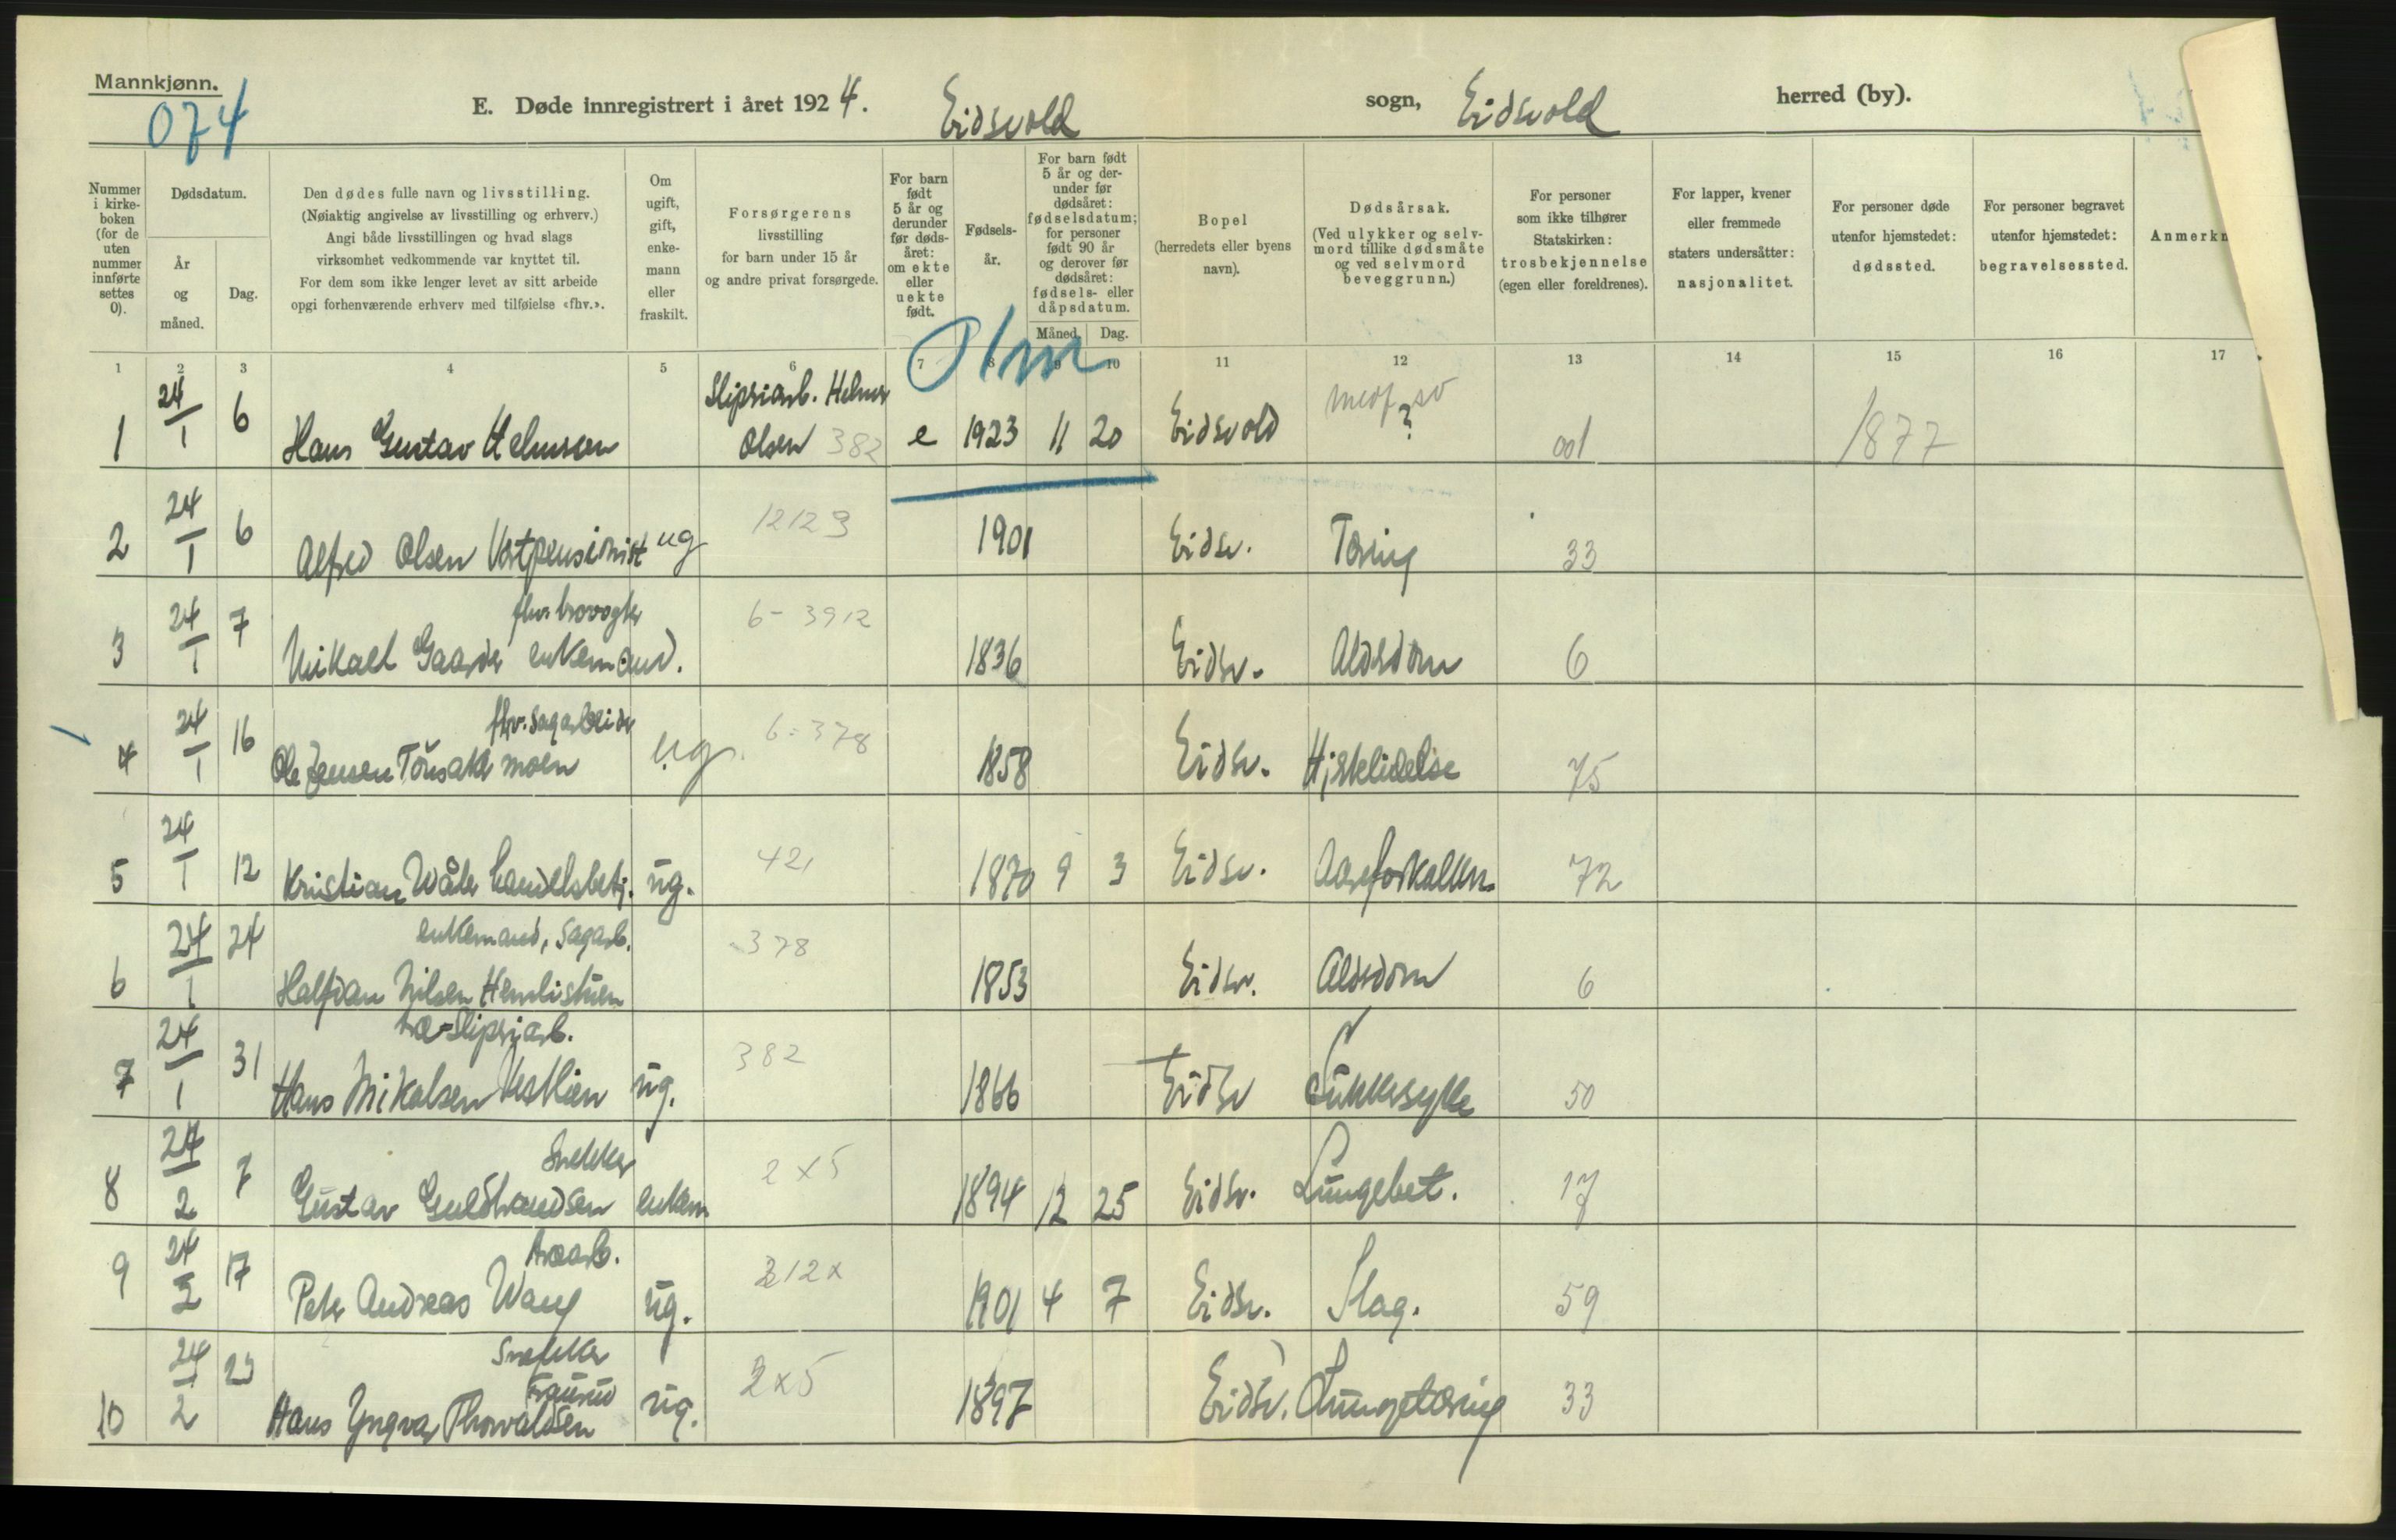 Mannkjønn.
074
E. Døde innregistrert i året 1924. Eidsvold sogn, Eidsvold herred (by).
Nummer i kirke-boken (for de uten nummer innførte settes 0).
Dødsdatum.
År og måned.
Dag.
Den dødes fulle navn og livsstilling.
(Nøiaktig angivelse av livsstilling og erhverv.)
Angi både livsstillingen og hvad slags
virksomhet vedkommende var knyttet til.
For dem som ikke lenger levet av sitt arbeide
opgi forhenværende erhverv med tilføielse «fhv.».
Om ugift, gift, enke-mann eller fraskilt.
Forsørgerens livsstilling for barn under 15 år og andre privat forsørgede.
For barn født 5 år og derunder før døds-året: om ekte eller uekte født.
Fødsels-år.
For barn født 5 år og der-under før dødsåret: fødselsdatum; for personer født 90 år og derover før dødsåret: fødsels- eller dåpsdatum.
Måned. Dag.
Bopel (herredets eller byens navn).
Dødsårsak. (Ved ulykker og selv-mord tillike dødsmåte og ved selvmord beveggrunn.)
For personer som ikke tilhører Statskirken: trosbekjennelse (egen eller foreldrenes).
For lapper, kvener eller fremmede staters undersåtter: nasjonalitet.
For personer døde utenfor hjemstedet: dødssted.
For personer begravet utenfor hjemstedet: begravelsessted.
Anmerkn
1 2 3 4 5 6 7 8 9 10 11 12 13 14 15 16 17
Slipriarb. Helmer
1 24/1 6 Hans Gustav Helmsen Olsen 382 e 1923 11 20 Eidsvold ? 001 1877
2 24/1 6 Alfred Olsen Vestpensionist ug 12129 1901 Eidsv. Tæring 33
3 24/1 7 Mikael Gaarder enkemand. 6-3912 1836 Eidsv. Alderdom 6
fhv. sagarbeider
4 24/1 16 Ole Jensen moen ug. 6:378 1858 Eidsv. Hjertelidelse 75
5 24/1 12 Kristian Wåler handelsbetj. ug. 421 1870 9 3 Eidsv. Aareforkalkn. 72
enkemand, sagarb.
6 24/1 24 Halfdan Nilsen Hemlistuen 378 1853 Eidsv. Alderdom 6
træ-slipriarb.
7 24/1 31 Hans Mikalsen Vestlien ug. 382 1866 Eidsv Sukkersyke 50
Snekker
8 24/2 7 Gustav Guldbrandsen enkem 2x5 1894 12 25 Eidsv. Lungebet. 17
9 24/2 17 Peter Andreas Wang ug. 212x 1901 4 7 Eidsv. Slag. 59
Snekker
10 24/2 23 Hans Yngvar Thorvaldsen ug. 2x5 1897 Eidsv. Lungetæring 33